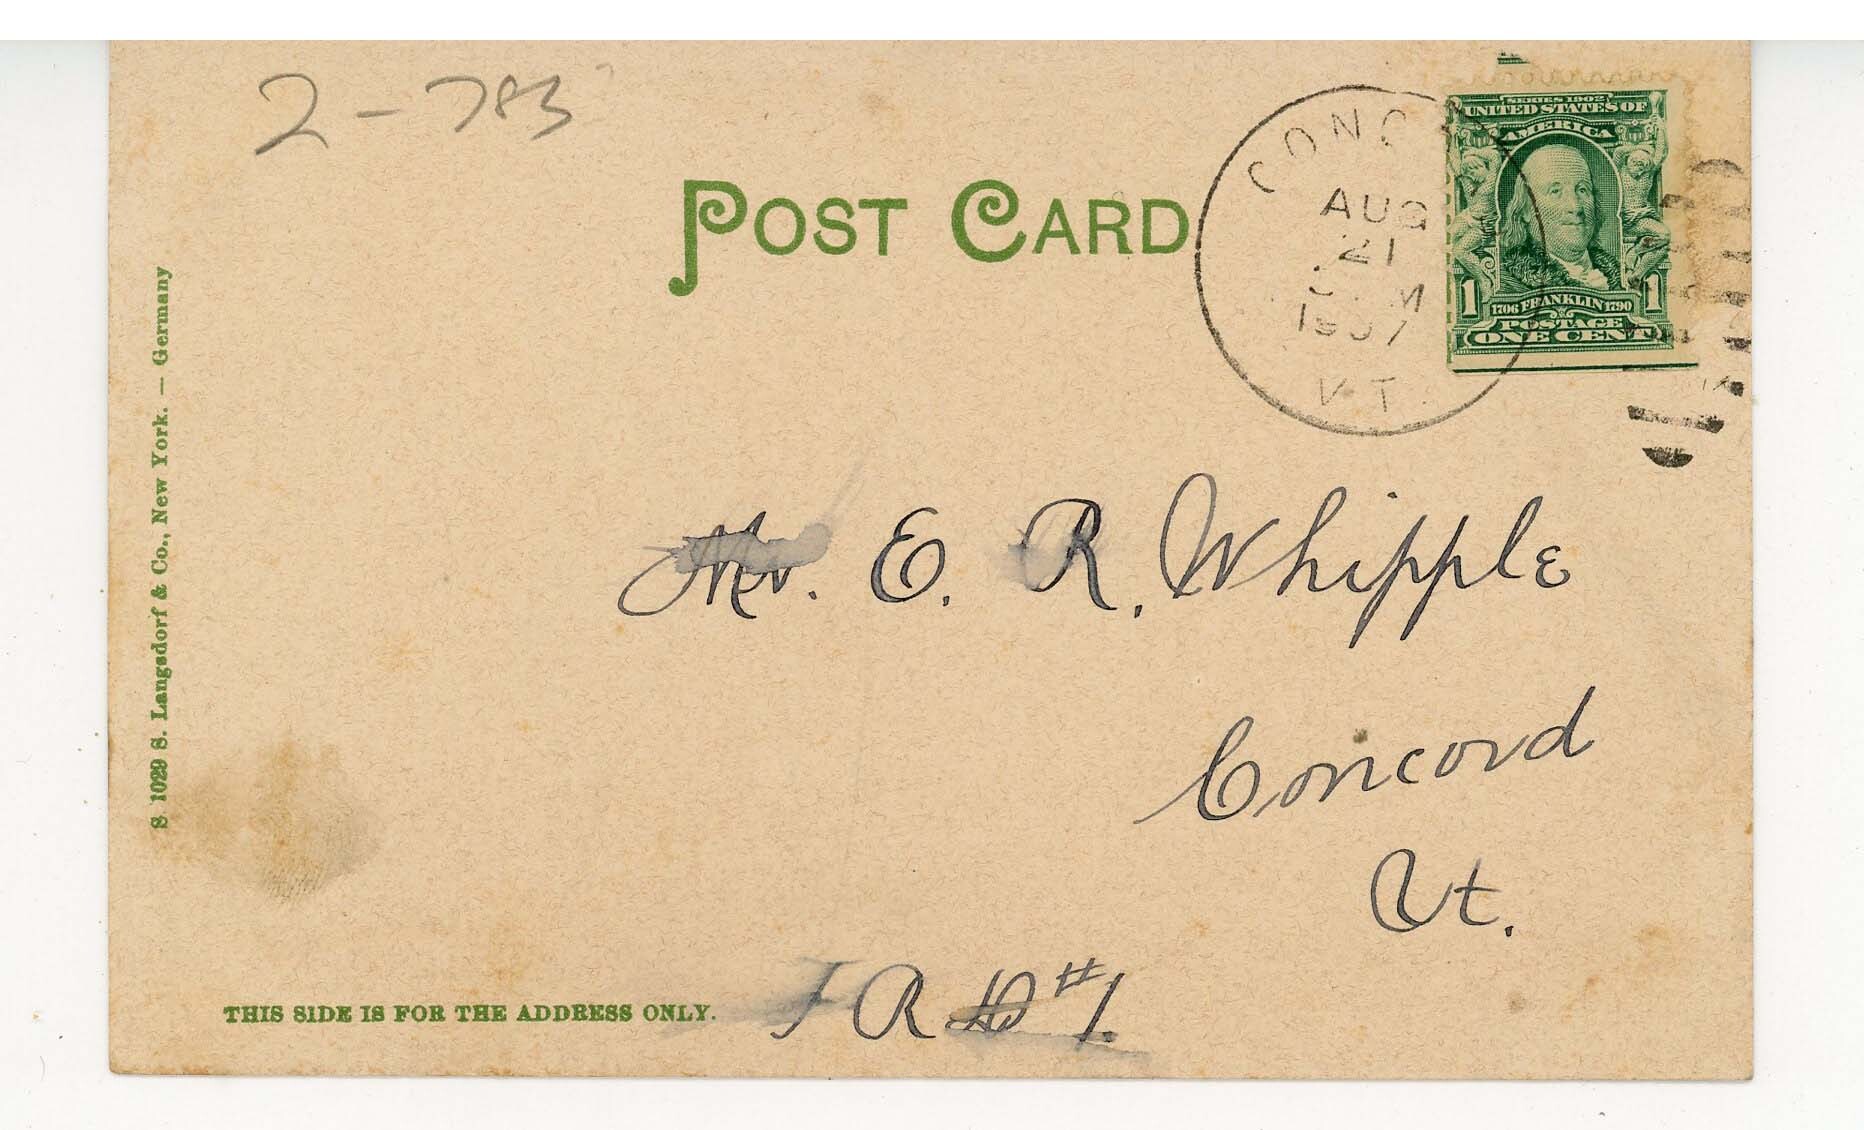 2-783
POST CARD
CONCORD
AUG
21
M
1907
VT.
SERIES 1902
UNITED STATES OF
AMERICA
1 1706 FRANKLIN 1790 1
POSTAGE
ONE CENT
Mr. E. R. Whipple
Concord
Vt.
F R D #1.
THIS SIDE IS FOR THE ADDRESS ONLY.
S. 1029 S. Langsdorf & Co., New York. — Germany